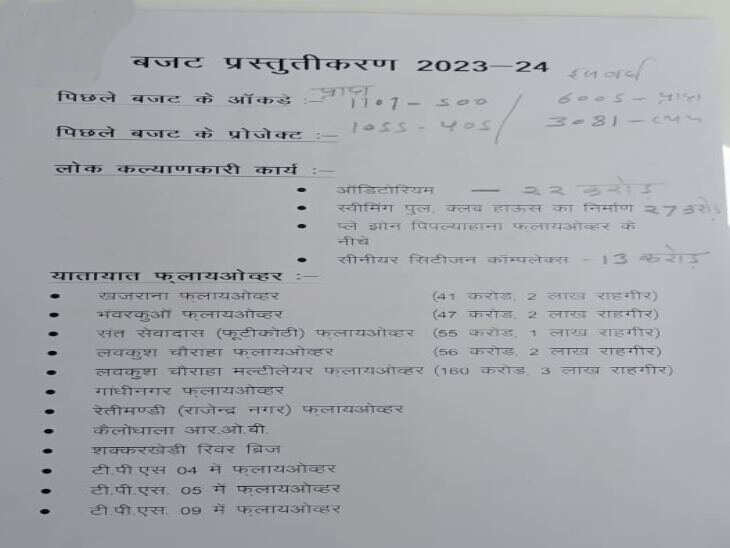 बजट प्रस्तुतीकरण 2023–24
पिछले बजट के ऑकडे :– प्राप्त 1101 - 500 / 6005 -
पिछले बजट के प्रोजेक्ट :– 1055 - 405 / 3081 -
लोक कल्याणकारी कार्य :–
• ऑडिटोरियम — 22 करोड़
• स्वीमिंग पुल, क्लब हाऊस का निर्माण 27 करोड़
• प्ले झोन पिपल्याहाना फ्लायओव्हर के
नीचे
• सीनीयर सिटीजन कॉम्पलेक्स - 13 करोड़
यातायात फ्लायओव्हर :–
• खजराना फ्लायओव्हर (41 करोड, 2 लाख राहगीर)
• भंवरकुऑ फ्लायओव्हर (47 करोड, 2 लाख राहगीर)
• संत सेवादास (फूटीकोठी) फ्लायओव्हर (55 करोड, 1 लाख राहगीर)
• लवकुश चौराहा फ्लायओव्हर (56 करोड, 2 लाख राहगीर)
• लवकुश चौराहा मल्टीलेयर फ्लायओव्हर (160 करोड, 3 लाख राहगीर)
• गांधीनगर फ्लायओव्हर
• रेतीमण्डी (राजेन्द्र नगर) फ्लायओव्हर
• कैलोधाला आर.ओ.बी.
• शक्करखेडी रिवर ब्रिज
• टी.पी.एस 04 में फ्लायओव्हर
• टी.पी.एस. 05 में फ्लायओव्हर
• टी.पी.एस. 09 में फ्लायओव्हर